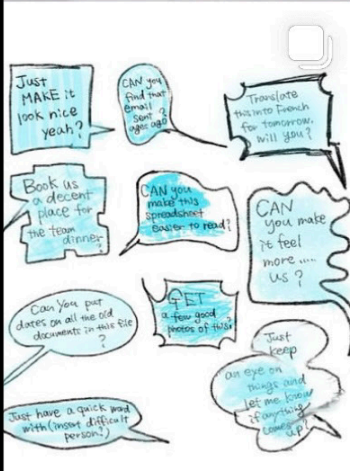 Just
MAKE it
look nice
yeah?
CAN you
find that
email
sent
ages ago?
Translate
this into French
for tomorrow.
will you?
Book us
a decent
place for
the team
dinner?
CAN you
make this
spreadsheet
easier to read?
CAN
you make
it feel
more.....
us?
Can You put
dates on all the old
documents in this file
?
GET
a few good
photos of this?
Just
keep
an eye on
things and
let me know
if anything
comes
up?
Just have a quick word
with (insert difficult
person?)